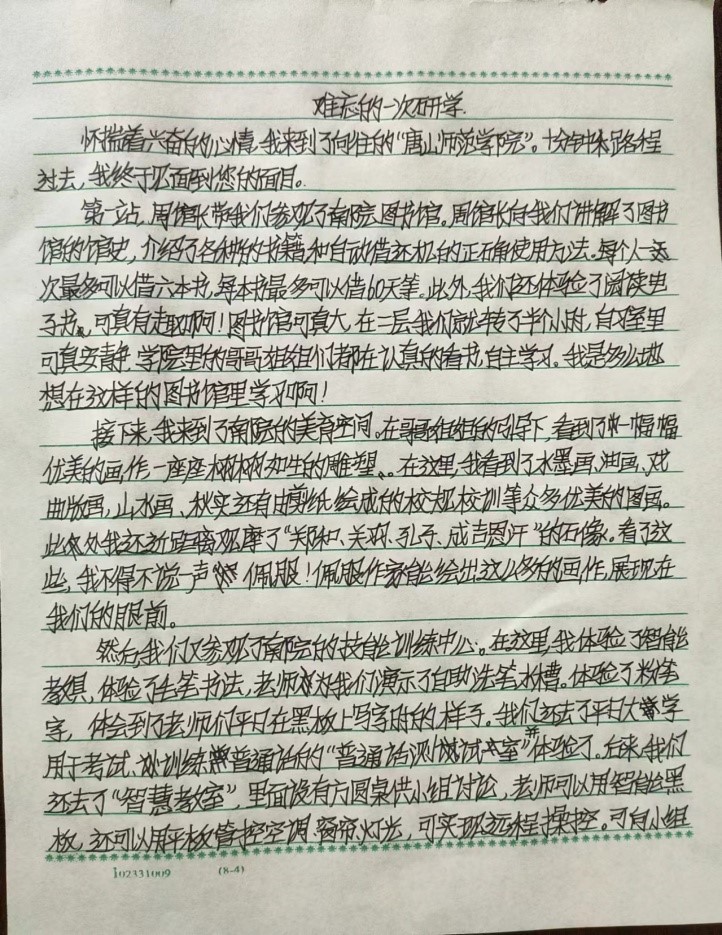 难忘的一次研学.
怀揣着兴奋的心情,我来到了向往的“唐山师范学院”。十分钟末路程
过去,我终于见面到您的面目.
第一站,周馆长带我们参观了南院图书馆。周馆长向我们讲解了图书
馆的馆史,介绍了各种的书籍,和自动借还机的正确使用方法。每个人一
次最多可以借六本书,每本书最多可以借60天等.此外,我们还体验了阅读电
子书,可真有趣啊!图书馆可真大,在二层我们就转了半个小时,自习室里
可真安静,学院里的哥哥姐姐们都在认真的看书,自主学习。我是多么地
想在这样的图书馆里学习啊!
接下来,我来到了南院的美育空间。在哥哥姐姐的引导下,看到了一幅幅
优美的画作,一座座栩栩如生的雕塑、在这里,我看到了水墨画、油画、戏
曲版画,山水画、秋实还有由剪纸绘成的校规校训等众多优美的图画。
此外我还近距离观摩了“郑和、关羽、孔子、成吉思汗”的石像。看了这
些,我不得不说一声 佩服!佩服作家能绘出这么多的画作,展现在
我们的眼前。
然后,我们又参观了南院的技能训练中心。在这里,我体验了智能
教具,体验了毛笔书法,老师为我们演示了自助洗笔水槽。体验了粉笔
字,体会到了老师们平日在黑板上写字时的样子。我们还去了平日大学
用于考试、训练普通话的“普通话测试室”并体验了。后来,我们
还去了“智慧教室”,里面设有方圆桌供小组讨论,老师可以用智能黑
板,还可以用平板管控空调、窗帘、灯光,可实现远程操控。可自小组
102331009 (8-4)